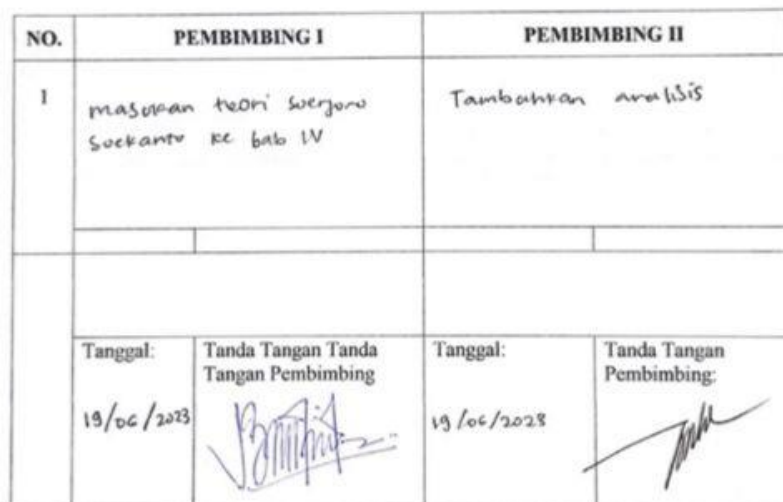 NO.
PEMBIMBING I
PEMBIMBING II
1
masukan teori Soerjono
Soekanto ke bab IV
Tambahkan analisis
Tanggal:
Tanda Tangan Tanda
Tangan Pembimbing
Tanggal:
Tanda Tangan
Pembimbing:
19/06/2023
19/06/2023